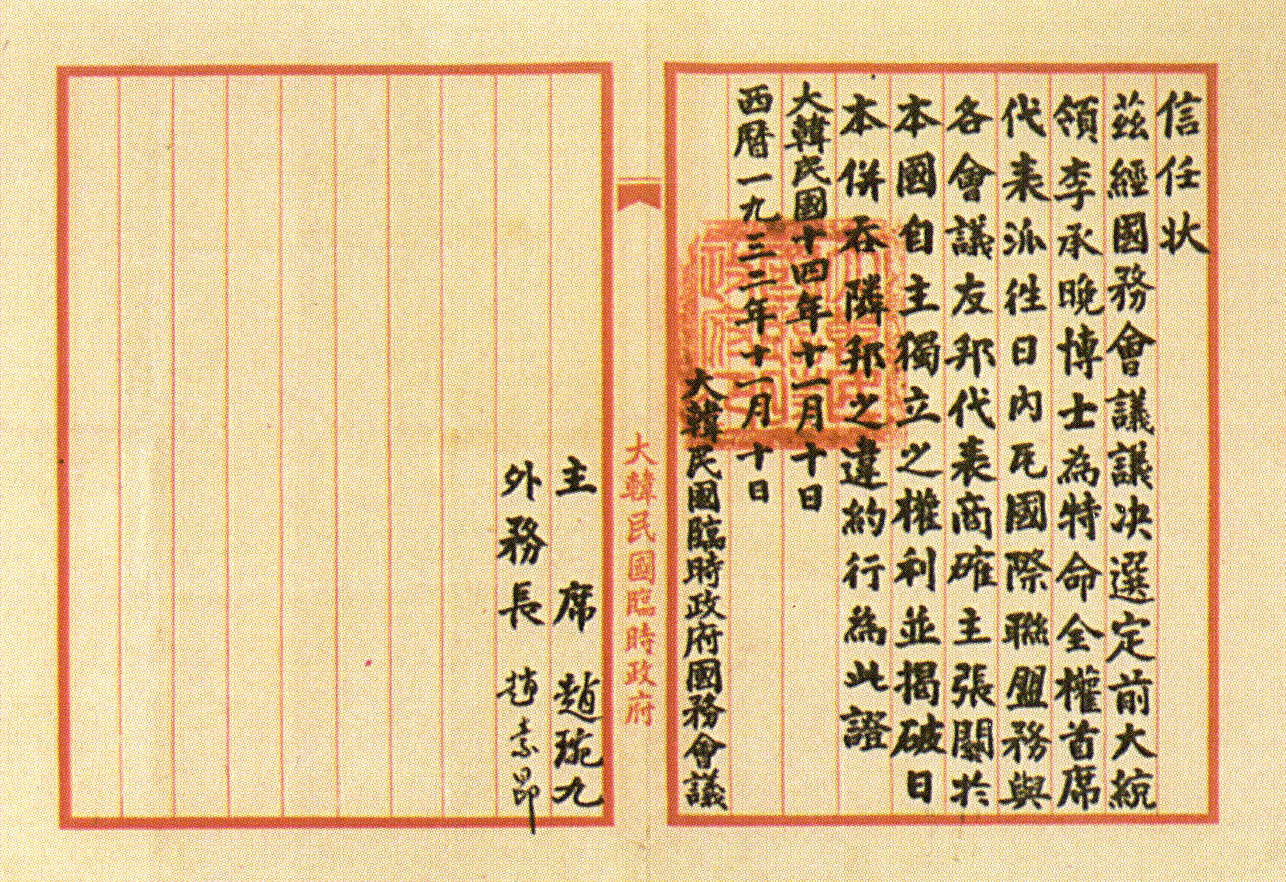 信任狀
茲經國務會議議决選定前大統
領李承晚博士為特命全權首席
代表派徃日內瓦國際聯盟務與
各會議友邦代表商確主張關於
本國自主獨立之權利並揭破日
本併吞隣邦之違約行為此證
大韓民國十四年十一月十日
西曆一九三二年十一月十日
大韓民國臨時政府國務會議
大韓民國臨時政府
主席 趙琬九
外務長 趙素昂